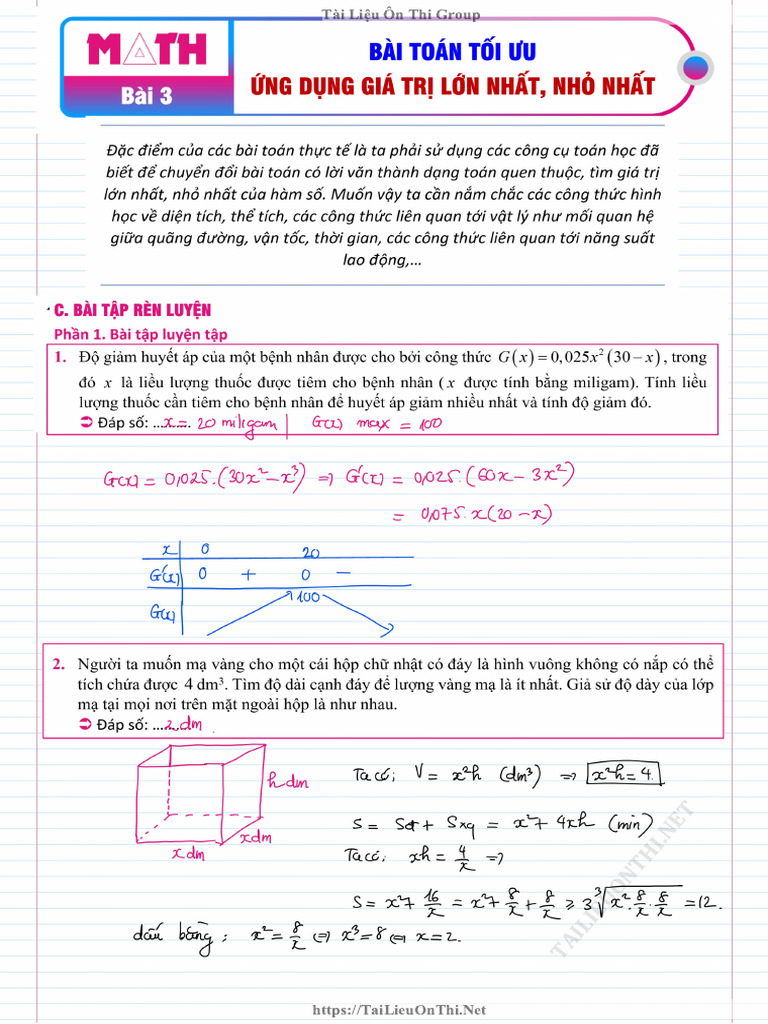 Tài Liệu Ôn Thi Group
MATH
BÀI TOÁN TỐI ƯU
Bài 3
ỨNG DỤNG GIÁ TRỊ LỚN NHẤT, NHỎ NHẤT
Đặc điểm của các bài toán thực tế là ta phải sử dụng các công cụ toán học đã
biết để chuyển đổi bài toán có lời văn thành dạng toán quen thuộc, tìm giá trị
lớn nhất, nhỏ nhất của hàm số. Muốn vậy ta cần nắm chắc các công thức hình
học về diện tích, thể tích, các công thức liên quan tới vật lý như mối quan hệ
giữa quãng đường, vận tốc, thời gian, các công thức liên quan tới năng suất
lao động,...
C. BÀI TẬP RÈN LUYỆN
Phần 1. Bài tập luyện tập
1. Độ giảm huyết áp của một bệnh nhân được cho bởi công thức G(x) = 0,025x²(30 – x), trong
đó x là liều lượng thuốc được tiêm cho bệnh nhân (x được tính bằng miligam). Tính liều
lượng thuốc cần tiêm cho bệnh nhân để huyết áp giảm nhiều nhất và tính độ giảm đó.
➲ Đáp số: ...x = 20 miligam | G(x) max = 100
G(x) = 0,025.(30x² – x³) ⇒ G'(x) = 0,025.(60x – 3x²)
= 0,075.x(20 – x)
x 0 20
G'(x) 0 + 0 –
G(x) 100
2. Người ta muốn mạ vàng cho một cái hộp chữ nhật có đáy là hình vuông không có nắp có thể
tích chứa được 4 dm³. Tìm độ dài cạnh đáy để lượng vàng mạ là ít nhất. Giả sử độ dày của lớp
mạ tại mọi nơi trên mặt ngoài hộp là như nhau.
➲ Đáp số: ...2 dm
h dm
x dm
x dm
Ta có: V = x²h (dm³) ⇒ x²h = 4.
S = Sđ + Sxq = x² + 4xh (min)
Ta có: xh = 4/x ⇒
S = x² + 16/x = x² + 8/x + 8/x ≥ 3∛(x².8/x.8/x) = 12.
dấu bằng: x² = 8/x ⇔ x³ = 8 ⇔ x = 2.
TAILIEUONTHI.NET
https://TaiLieuOnThi.Net